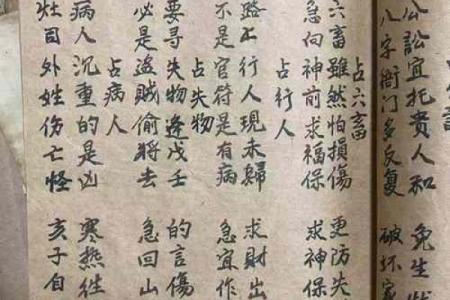 公訟宜托貴人和 免生
八字衙门多反复 破坏家
占六畜
六畜雖然怕損傷 更防失
急向神前求福保 求神保
占行人
路上行人現未歸 求財出
不是官符是有病 急宜作
占失物
要尋失物逢戊壬 的言傷
必是盗賊偷将去 急回山
占病人
病人沉重的是凶 寒熱往
灶司外姓伤亡怪 亥子自